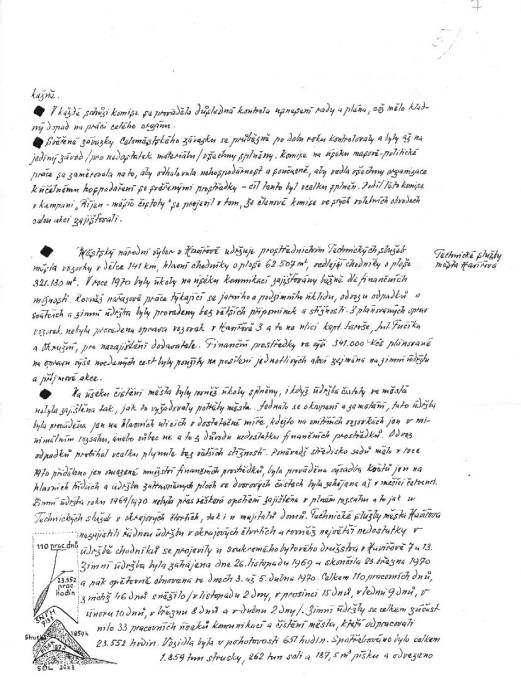 7
5/
kázně.
V každé schůzi komise se prováděla důsledná kontrola usnesení rady a pléna, což mělo klad-
ný dopad na práci celého orgánu.
Svěřené závazky Celoměstského závazku se průběžně po dobu roku kontrolovaly a byly až na
jediný závod /pro nedostatek materiálu/ všechny splněny. Komise na úseku masově-politické
práce se zaměřovala na to, aby odhalovala nehospodárnost a současně, aby vedla všechny organizace
k účelnému hospodaření se svěřenými prostředky - cíl tento byl vcelku splněn. Podíl této komise
v kampani, Říjen - měsíc čistoty" se projevil v tom, že členové komise ve svých volebních obvodech
celou akci zajišťovali.
Městský národní výbor v Havířově udržuje prostřednictvím Technických služeb
města vozovky v délce 141 km, hlavní chodníky o ploše 62.507 m², vedlejší chodníky o ploše
321.130 m². V roce 1970 byly úkoly na úseku komunikací zajišťovány běžně dle finančních
možností. Rovněž nárazové práce týkající se jarního a podzimního úklidu, odvozu odpadků o
svátcích a zimní údržba byly provedeny bez větších připomínek a stížností. Z plánovaných oprav
vozovek nebyla provedena oprava vozovek v Havířově 3 a to na ulici kapt. Jaroše, Jul. Fučíka
a Okružní, pro nezajištění dodavatele. Finanční prostředky ve výši 391.000 Kčs plánované
na opravu výše uvedených cest byly použity na posílení jednotlivých akcí zejména na zimní údržbu
a příjmové akce.
Technické služby
města Havířova
Na úseku čištění města byly rovněž úkoly splněny, i když údržba čistoty ve městě
nebyla zajištěna tak, jak to vyžadovaly potřeby města. Jednalo se o kropení a zametání, tato údržba
byla prováděna jen na hlavních ulicích v dostatečné míře, kdežto na vnitřních vozovkách jen v mi-
nimálním rozsahu, anebo vůbec ne a to z důvodu nedostatku finančních prostředků. Odvoz
odpadků probíhal vcelku plynule bez větších stížností. Poněvadž středisko sadů mělo v roce
1970 přiděleno jen omezené množství finančních prostředků, byla prováděna výsadba květů jen na
hlavních třídách a údržba zatravněných ploch ve dvorových částech byla zahájena až v měsíci červenci.
Zimní údržba roku 1969/1970 nebyla přes veškerá opatření zajištěna v plném rozsahu a to jak u
Technických služeb v okrajových čtvrtích, tak i u majitelů domů. Technické služby města Havířova
nezajistili řádnou údržbu v okrajových čtvrtích a rovněž největší nedostatky v
údržbě chodníků se projevily u soukromého bytového družstva v Havířově 7 a 13.
Zimní údržba byla zahájena dne 26. listopadu 1969 a skončila 23. března 1970
a pak opětovně obnovena ve dnech 3. až 5. dubna 1970. Celkem 110 pracovních dnů,
z nichž 46 dnů sněžilo /v listopadu 2 dny, v prosinci 15 dnů, v lednu 9 dnů, v
únoru 10 dnů, v březnu 8 dnů a v dubnu 2 dny/. Zimní údržby se celkem zúčast-
nilo 33 pracovních úseků komunikací a čištění města, kteří odpracovali
23.552 hodin. Vozidla byla v pohotovosti 651 hodin. Spotřebováno bylo celkem
1.859 tun strusky, 262 tun soli a 187,5 m³ písku a odvezeno
110 prac. dnů
23.552
prac.
hodin
Struska
1859 t
SŮL 262 t